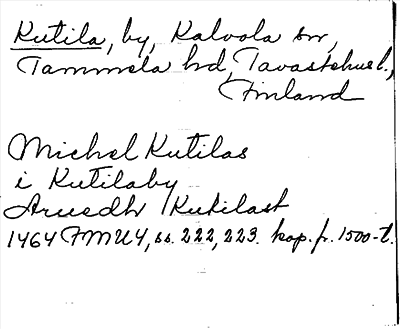 Kutila, by, Kalvola sn,
Tammela hd, Tavastehus l.,
Finland
Michel Kutilas
i Kutilaby
Kukilast
1464 FMU 4, ss. 222, 223. kop. fr. 1500-t.